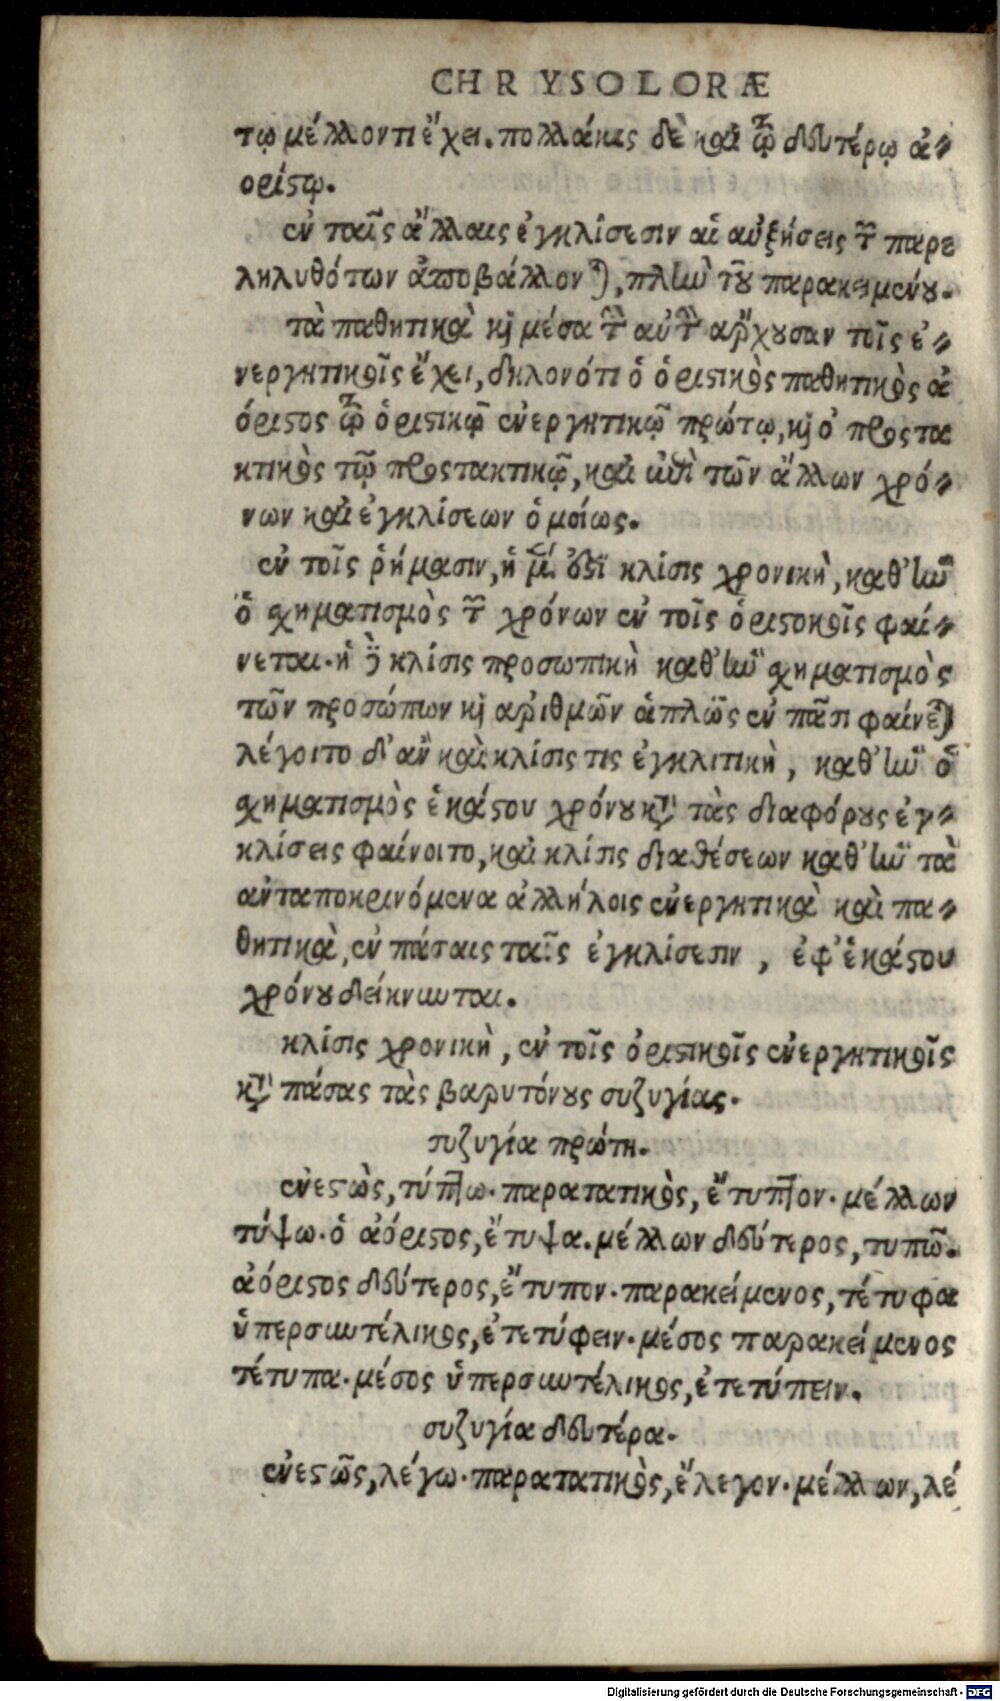 CHRYSOLORÆ
τῳ μέλλοντι ἔχει. πολλάκις δὲ καὶ τῷ δευτέρῳ ἀ-
ορίστῳ.
ἐν ταῖς ἄλλαις ἐγκλίσεσιν αἱ αὐξήσεις τῶν παρε
ληλυθότων ἀποβάλλονται, πλὴν τοῦ παρακειμένου.
τὰ παθητικὰ καὶ μέσα τὴν αὐτὴν ἄρχουσαν τοῖς ἐ-
νεργητικοῖς ἔχει, δηλονότι ὁ ὁριστικὸς παθητικὸς ἀ
όριστος τῷ ὁριστικῷ ἐνεργητικῷ πρώτῳ, καὶ ὁ προστα
κτικὸς τῷ προστακτικῷ, καὶ ἐπὶ τῶν ἄλλων χρό-
νων καὶ ἐγκλίσεων ὁμοίως.
ἐν τοῖς ῥήμασιν, ἡ μέν ἐστι κλίσις χρονικὴ, καθ' ἣν
ὁ σχηματισμὸς τῶν χρόνων ἐν τοῖς ὁριστοκοῖς φαί-
νεται. ἡ δὲ κλίσις προσωπικὴ καθ' ἣν σχηματισμὸς
τῶν προσώπων καὶ ἀριθμῶν ἁπλῶς ἐν πᾶσι φαίνεται
λέγοιτο δ' ἂν καὶ κλίσις τις ἐγκλιτικὴ, καθ' ἣν ὁ
σχηματισμὸς ἑκάστου χρόνου κατὰ τὰς διαφόρους ἐγ-
κλίσεις φαίνοιτο, καὶ κλίσις διαθέσεων καθ' ἣν τὰ
ἀνταποκρινόμενα ἀλλήλοις ἐνεργητικὰ καὶ πα-
θητικὰ, ἐν πάσαις ταῖς ἐγκλίσεσιν, ἐφ' ἑκάστου
χρόνου δείκνυται.
κλίσις χρονικὴ, ἐν τοῖς ὁριστικοῖς ἐνεργητικοῖς
κατὰ πάσας τὰς βαρυτόνους συζυγίας.
συζυγία πρώτη.
ἐνεστὼς, τύπτω. παρατατικὸς, ἔτυπτον. μέλλων
τύψω. ὁ ἀόριστος, ἔτυψα. μέλλων δεύτερος, τυπῶ.
ἀόριστος δεύτερος, ἔτυπον. παρακείμενος, τέτυφα
ὑπερσυντέλικος, ἐτετύφειν. μέσος παρακείμενος
τέτυπα. μέσος ὑπερσυντέλικος, ἐτετύπειν.
συζυγία δευτέρα.
ἐνεστῶς, λέγω. παρατατικὸς, ἔλεγον. μέλλων, λέ
Digitalisierung gefördert durch die Deutsche Forschungsgemeinschaft - DFG